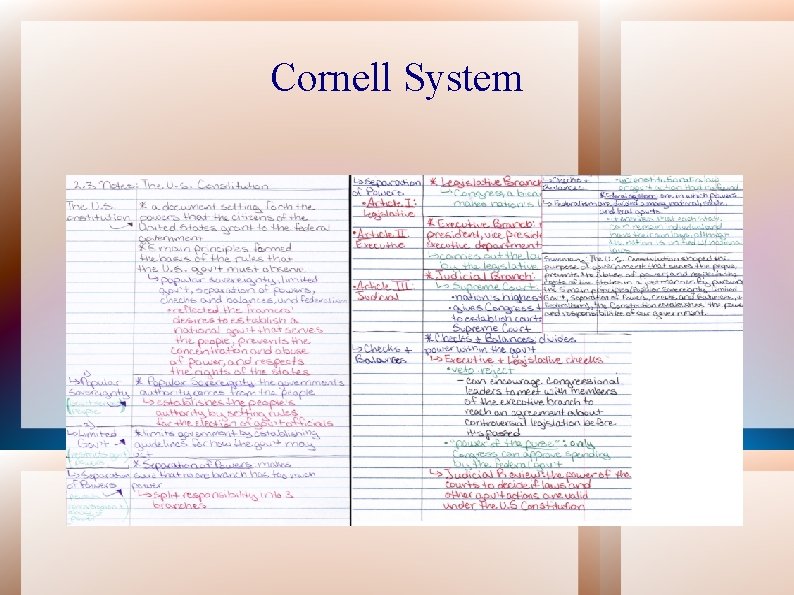 Cornell System
2.3 Notes: The U.S. Constitution
The U.S.
Constitution
* a document setting forth the
powers that the citizens of the
United States grant to the federal
government
* 5 main principles formed
the basis of the rules that
the U.S. gov't must observe
↳ popular sovereignty, limited
gov't, separation of powers,
checks and balances, and federalism
• reflected the framers'
desires to establish a
national gov't that serves
the people, prevents the
concentration and abuse
of power, and respects
the rights of the states
↳ Popular
Sovereignty
* Popular Sovereignty the governments
authority comes from the people
↳ establishes the people's
authority by setting rules
for the election of gov't officials
↳ Limited
Gov't
* limits government by establishing
guidelines for how the gov't may
act
↳ Separation
of Powers
* Separation of Powers makes
sure that no one branch has too much
power
↳ Split responsibility into 3
branches
↳ Separation
of Powers
• Article I:
Legislative
* Legislative Branch
→ Congress, a
makes nation's
• Article II:
Executive
* Executive Branch:
president, vice
executive department
↳ carries out the
by the legislative
• Article III:
Judicial
* Judicial Branch:
↳ Supreme Court
• nation's highest
• gives Congress
to establish
Supreme Court
↳ Checks +
Balances
* Checks + Balances divides
power within the gov't
↳ Executive + legislative checks
• veto: reject
- can encourage Congressional
leaders to meet with members
of the executive branch to
reach an agreement about
controversial legislation before
it is passed
• "power of the purse": only
Congress can approve spending
by the federal gov't
↳ Judicial Review: the power of the
courts to decide if laws and
other gov't actions are valid
under the U.S Constitution
Balances
↳ Federalism
* Federalism
powers
among national, state,
and local govts
Summary: The U.S. Constitution shaped the
purpose of government that serves the people,
prevents the abuse of power, and respects the
rights of the states
the 5 main principles (Popular Sovereignty, Limited
Gov't, Separation of Powers, Checks and Balances,
Federalism), the Constitution establishes the power
and responsibilities of our government.